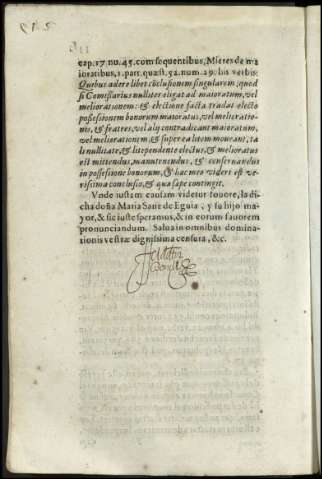 cap. 17. nu. 45. cum sequentibus, Mieres de ma
ioratibus, 1. part. quæst. 52. num. 29. his verbis
Quibus adere libet cõclusionem singularem, quod
si Comissarius nulliter eligat ad maioratum, vel
meliorationem: & electione facta tradat electo
possessionem bonorum maioratus, vel melioratio-
nis, & fratres, vel alij contradicant maioratum,
vel meliorationem, & super ea litem moveant, ta
lis nullitate, & lite pendente electus, & melioratus
est mittendus, manutenendus, & conservandus
in possessione bonorum, & hæc mee videri est ve
rissima conclusio, & quæ sæpe contingit.
Vnde iustam causam videtur fouere, la di-
cha doña Maria Sanz de Eguia, y su hijo ma-
yor, & sic iuste speramus, & in eorum fauorem
pronunciandum. Salua in omnibus domina-
tionis vestræ dignissima censura, &c.